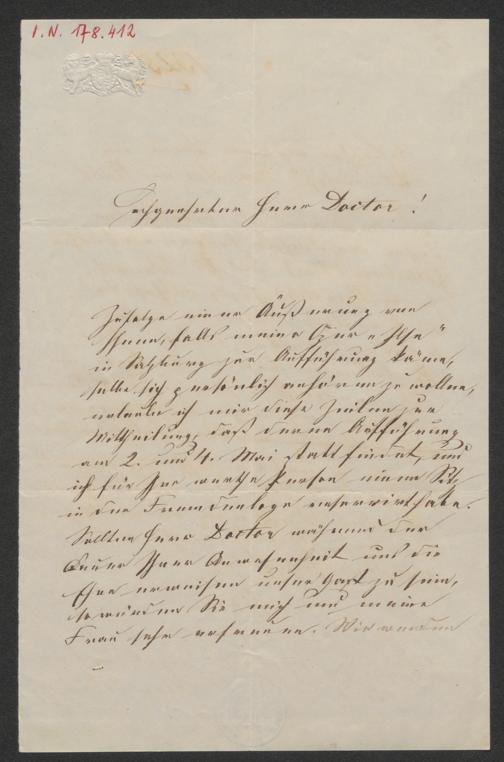 I. N. 178.412
Hochgeehrter Herr Doctor!
Zufolge einer Äußerung von
Ihnen, falls meine Oper „Ilse"
in Salzburg zur Aufführung käme,
selbe sich persönlich anhören zu wollen,
erlaube ich mir diese Zeilen zur
Mittheilung, daß deren Aufführung
am 2. und 4. Mai stattfindet, und
ich für Ihre werthe Person einen Sitz
in der Fremdenloge reservirt habe.
Sollten Herr Doctor während der
Dauer Ihrer Anwesenheit uns die
Ehre erweisen unser Gast zu sein,
so würden Sie mich und meine
Frau sehr erfreuen. Wir werden